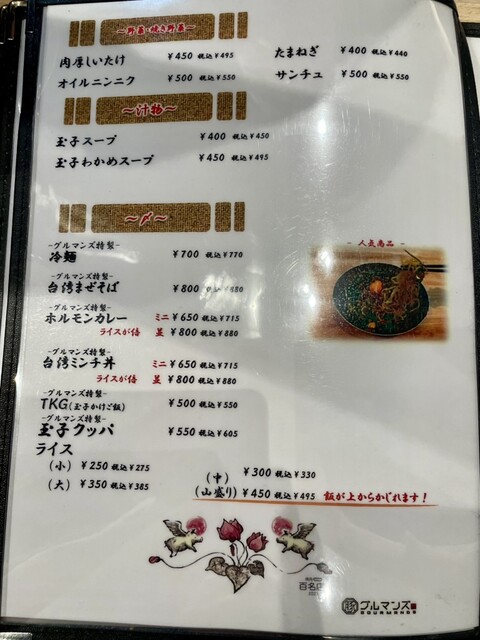 ～野菜・焼き野菜～
肉厚しいたけ ¥450 税込¥495
たまねぎ ¥400 税込¥440
オイルニンニク ¥500 税込¥550
サンチュ ¥500 税込¥550
～汁物～
玉子スープ ¥400 税込¥450
玉子わかめスープ ¥450 税込¥495
～〆～
-グルマンズ特製-
冷麺 ¥700 税込¥770
-グルマンズ特製-
台湾まぜそば ¥800 税込¥880
- 人気商品 -
-グルマンズ特製-
ホルモンカレー ミニ ¥650 税込¥715
ライスが倍 並 ¥800 税込¥880
-グルマンズ特製-
台湾ミンチ丼 ミニ ¥650 税込¥715
ライスが倍 並 ¥800 税込¥880
-グルマンズ特製-
TKG(玉子かけご飯) ¥500 税込¥550
-グルマンズ特製-
玉子クッパ ¥550 税込¥605
ライス
（小） ¥250 税込¥275
（中） ¥300 税込¥330
（大） ¥350 税込¥385
（山盛り） ¥450 税込¥495 飯が上からかじれます！
百名店
グルマンズ
GOURMANDS